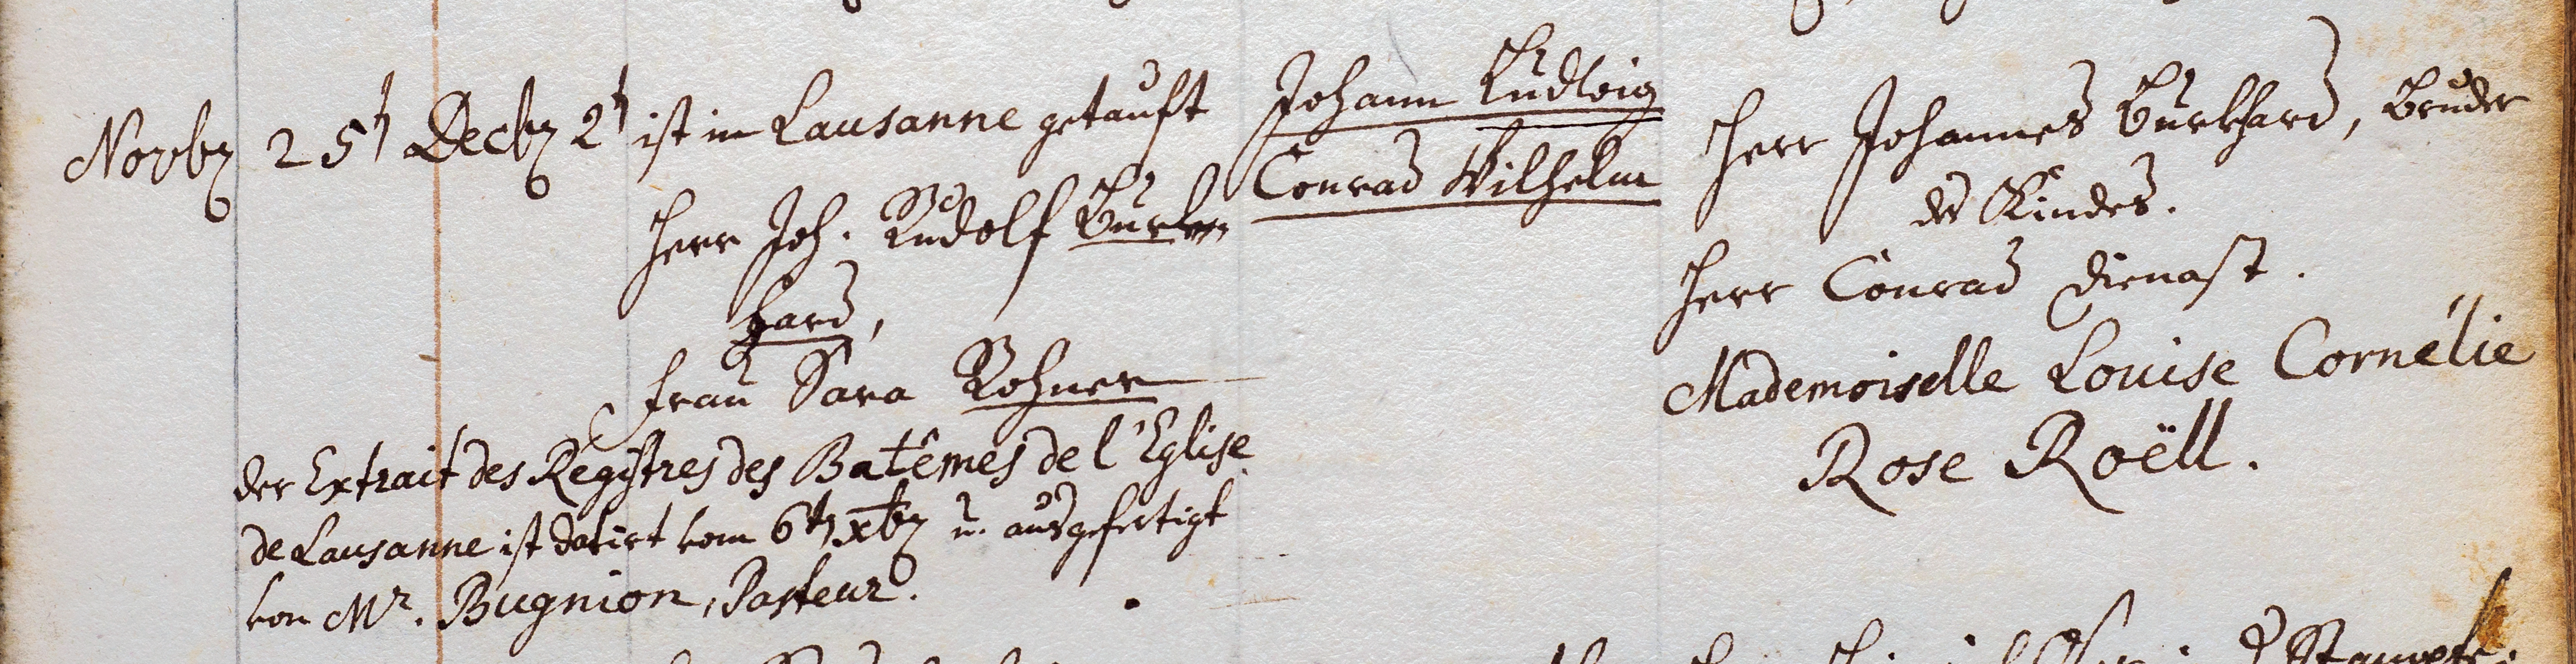 Novbr 25t Decbr 2t ist in Lausanne getauft
Herr Joh. Rudolf Burk-
hard,
Frau Sara Rohner
der Extrait des Régistres des Batêmes de l'Eglise
de Lausanne ist datirt vom 6tn xbr u. ausgefertigt
von Mr. Bugnion, Pasteur.
Johann Ludwig
Conrad Wilhelm
Herr Johannes Burkhard, Bruder
des Kindes.
Herr Conrad Dienast.
Mademoiselle Louise Cornélie
Rose Roëll.